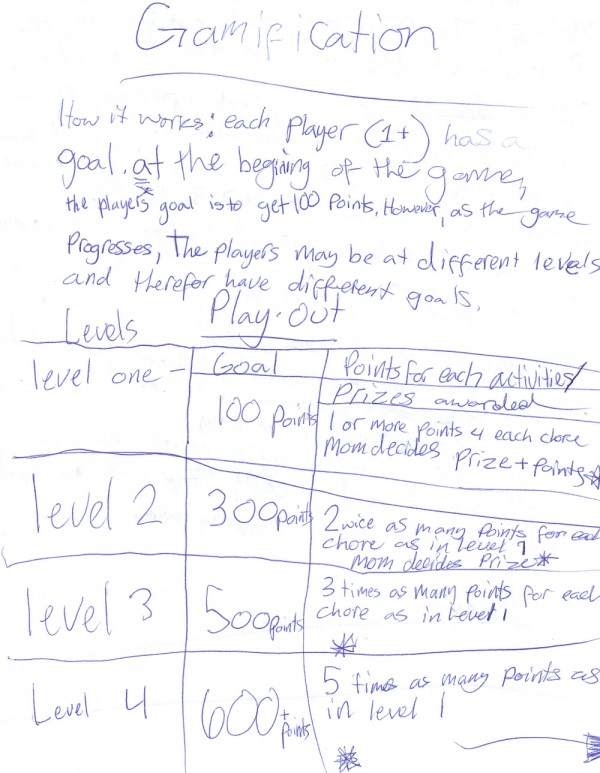 Gamification
How it works: each player (1+) has a
goal. at the begining of the game,
the players goal is to get 100 Points. However, as the game
Progresses, The players may be at different levels
and therefor have different goals.
Levels Play-Out
level one - Goal Points for each activities/
Prizes awarded
100 Points 1 or more points 4 each chore
Mom decides Prize + points*
level 2 300 points 2wice as many Points for each
chore as in level 1
Mom decides Prize*
level 3 500 points 3 times as many points for each
chore as in level 1
*
Level 4 600+ Points 5 times as many points as
in level 1
*